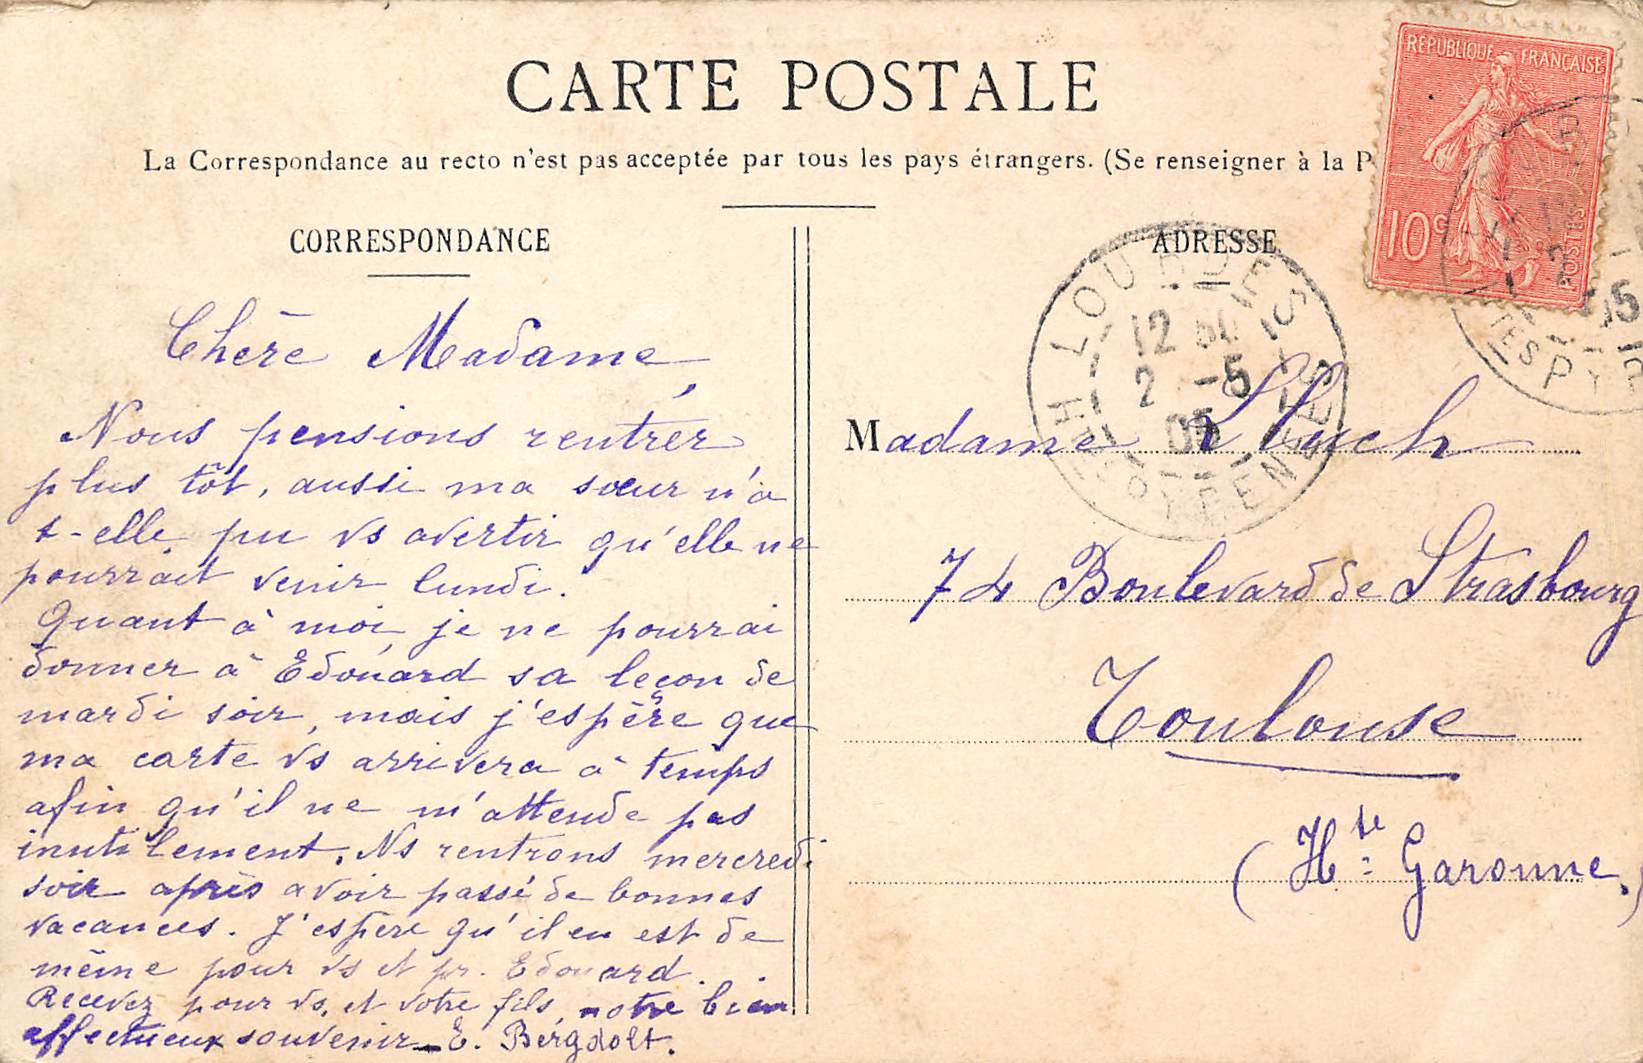 CARTE POSTALE
La Correspondance au recto n'est pas acceptée par tous les pays étrangers. (Se renseigner à la P
RÉPUBLIQUE FRANÇAISE
10c
POSTES
CORRESPONDANCE
Chère Madame,
Nous pensions rentrer
plus tôt, aussi ma sœur n'a
t-elle pu vs avertir qu'elle ne
pourrait venir lundi.
Quant à moi je ne pourrai
donner à Edouard sa leçon de
mardi soir, mais j'espère que
ma carte vs arrivera à temps
afin qu'il ne m'attende pas
inutilement. Ns rentrons mercredi
soir après avoir passé de bonnes
vacances. J'espère qu'il en est de
même pour vs et pr. Edouard.
Recevez pour vs, et votre fils, notre bien
affectueux souvenir_ E. Bergdolt.
ADRESSE
LOURDES
12 50
2 -5
05
HTES PYRENEES
Madame
74 Boulevard de Strasbourg
Toulouse
(Hte: Garonne.)